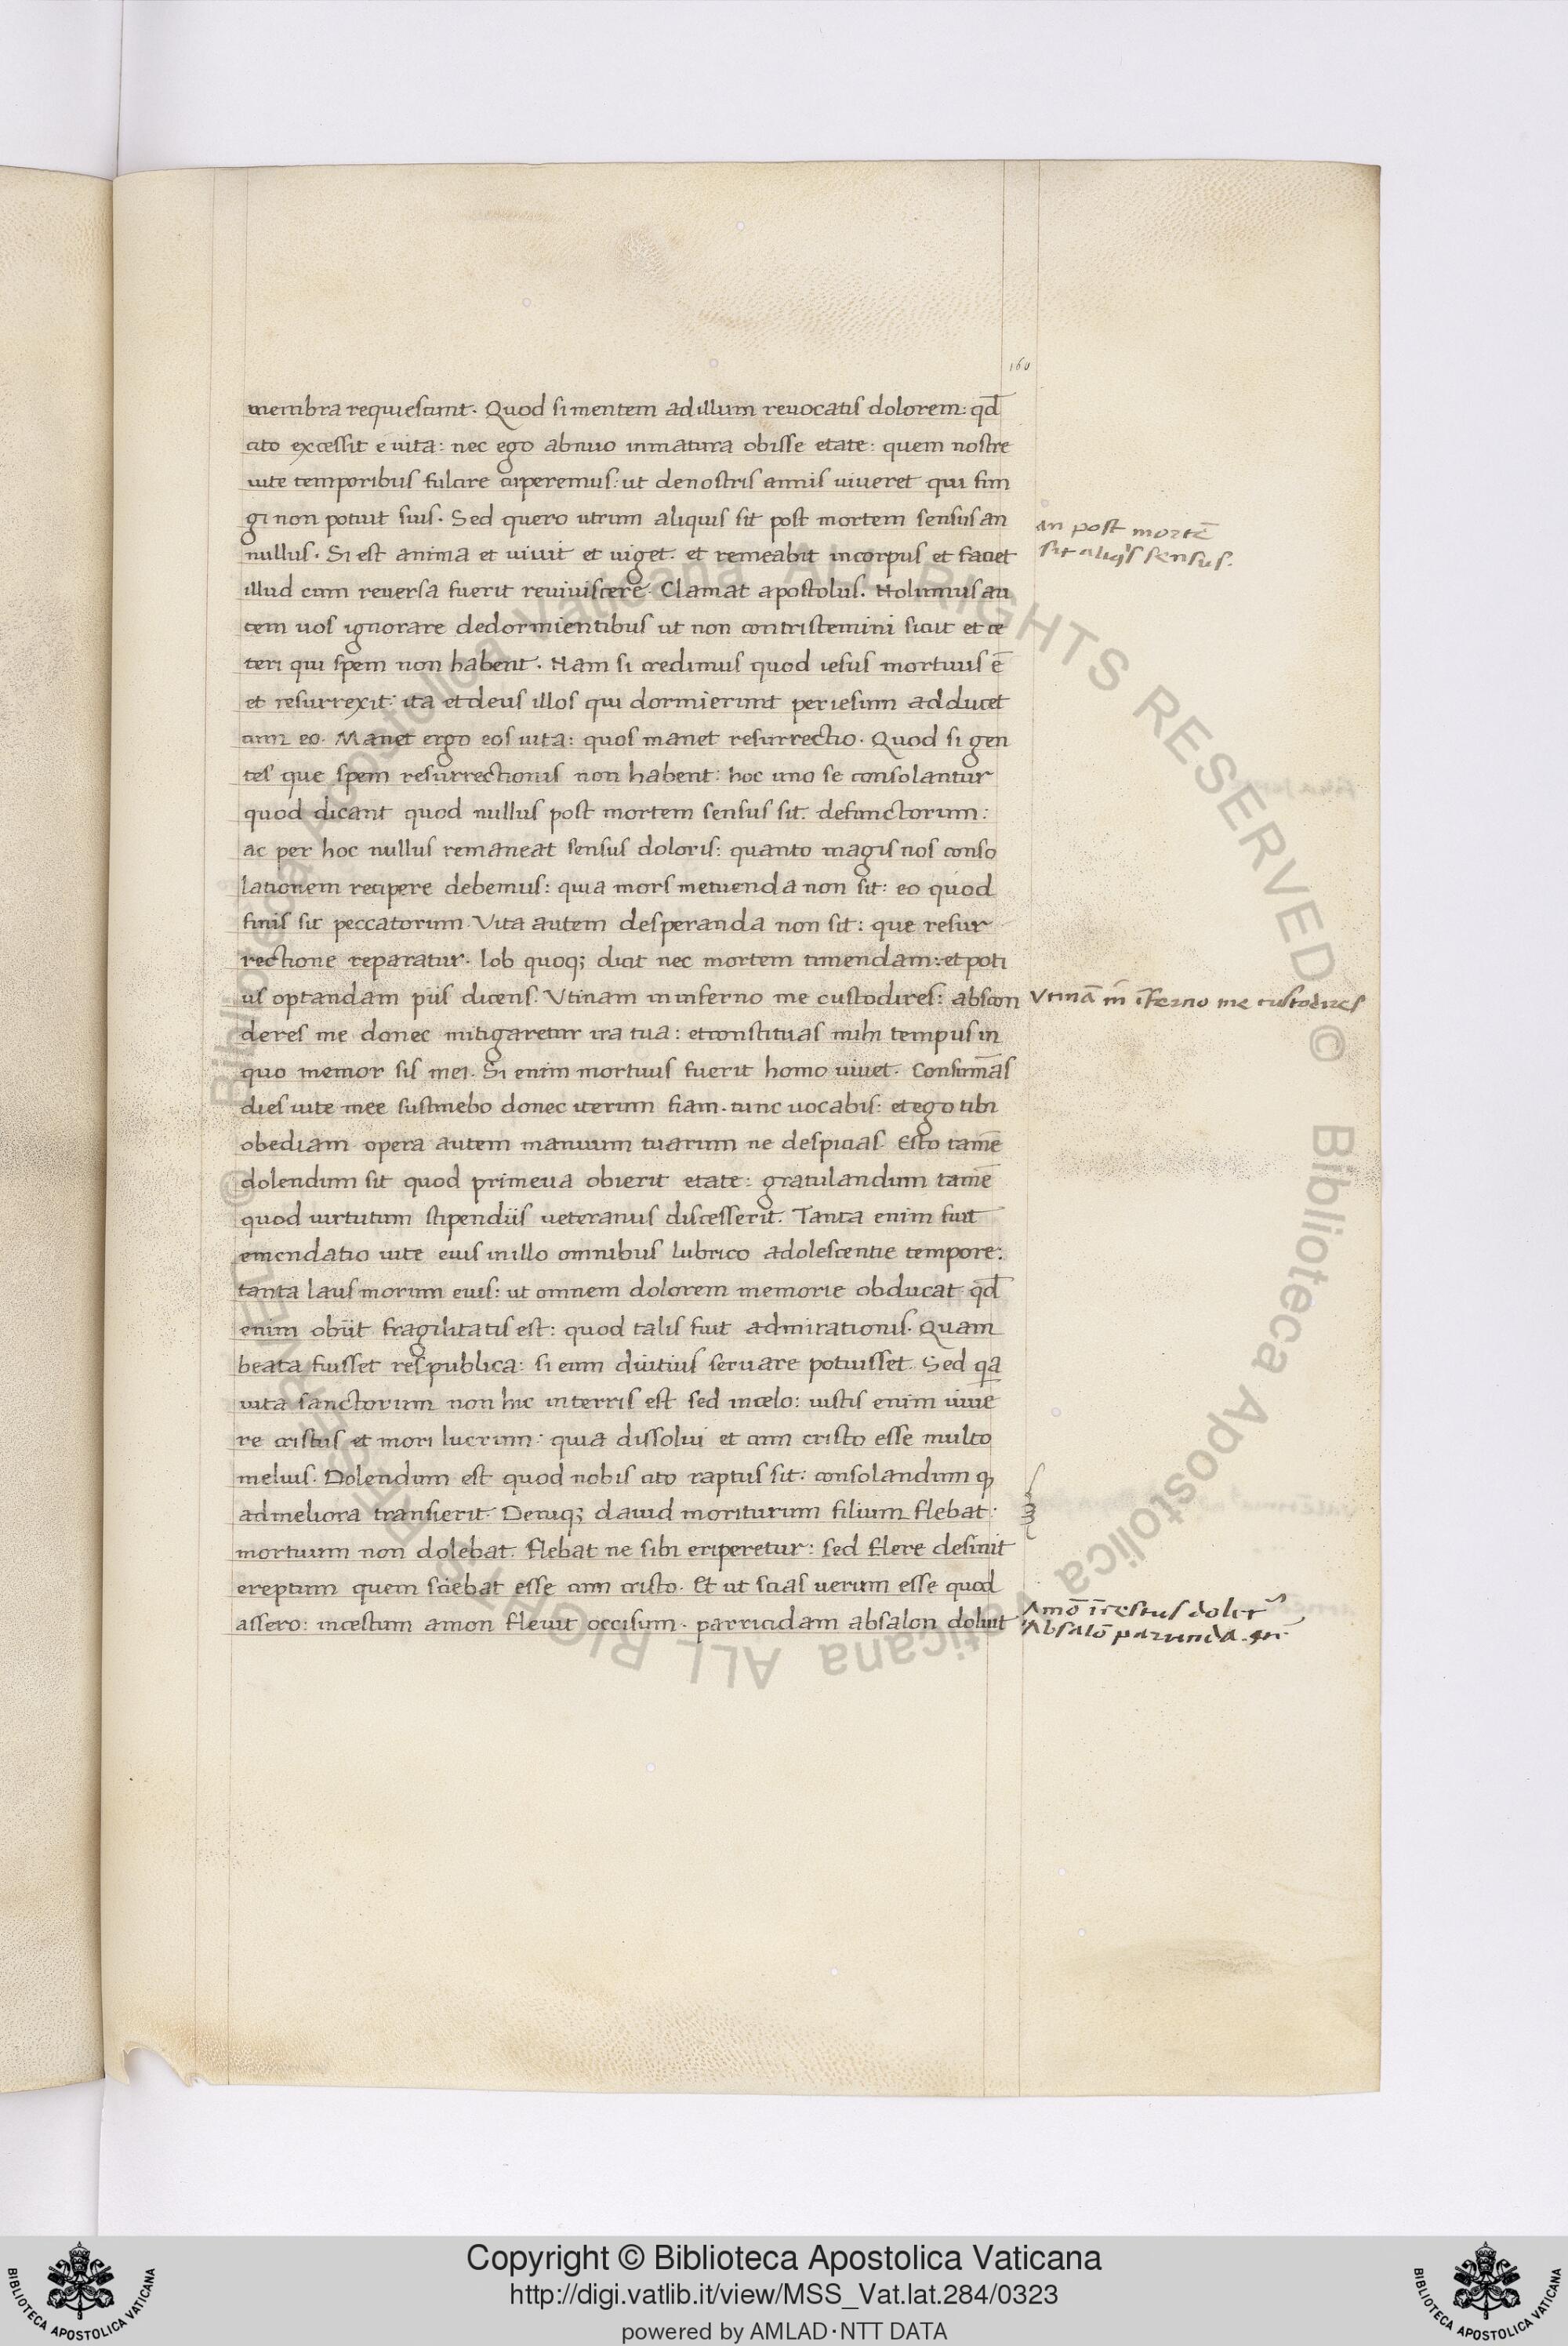 160
membra requiescunt. Quod si mentem ad illum reuocatis dolorem: qd̄
cito excessit e uita: nec ego abnuo inmatura obisse etate: quem nostre
uite temporibus fulcire cuperemus: ut de nostris annis uiueret qui fun
gi non potuit suis. Sed quero utrum aliquis sit post mortem sensus an
nullus. Si est anima et uiuit et uiget. et remeabit in corpus et faciet
illud cum reuersa fuerit reuiuiscere. Clamat apostolus. Nolumus au
tem uos ignorare de dormientibus ut non contristemini sicut et ce
teri qui spem non habent. Nam si credimus quod iesus mortuus ē
et resurrexit: ita et deus illos qui dormierunt per iesum adducet
cum eo. Manet ergo eos uita: quos manet resurrectio. Quod si gen
tes que spem resurrectionis non habent: hoc uno se consolantur
quod dicant quod nullus post mortem sensus sit. defunctorum:
ac per hoc nullus remaneat sensus doloris: quanto magis nos conso
lationem recipere debemus: quia mors metuenda non sit: eo quod
finis sit peccatorum. Vita autem desperanda non sit: que resur
rectione reparatur. Iob quoq; dicit nec mortem timendam: et poti
us optandam piis dicens. Vtinam in inferno me custodires: abscon
deres me donec mitigaretur ira tua: et constituas mihi tempus in
quo memor sis mei. Si enim mortuus fuerit homo uiuet. Consum̄as
dies uite mee sustinebo donec iterum fiam. tunc uocabis: et ego tibi
obediam opera autem manuum tuarum ne despicias. Esto tamē
dolendum sit quod primeua obierit etate: gratulandum tamē
quod uirtutum stipendiis ueteranus discesserit. Tanta enim fuit
emendatio uite eius in illo omnibus lubrico adolescentie tempore:
tanta laus morum eius: ut omnem dolorem memorie obducat qd̄
enim obiit fragilitatis est: quod talis fuit admirationis. Quam
beata fuisset respublica: si eum diutius seruare potuisset. Sed qa
uita sanctorum non hic in terris est sed in celo: iustis enim uiue
re cristus et mori lucrum: quia dissolui et cum cristo esse multo
melius. Dolendum est quod nobis cito raptus sit: consolandum ꝙ
ad meliora transierit. Deniq; dauid moriturum filium flebat:
mortuum non dolebat. flebat ne sibi eriperetur: sed flere desinit
ereptum quem sciebat esse cum cristo. Et ut scias uerum esse quod
assero: incestum amon fleuit occisum. parricidam absalon doluit
an post mortē
sit aliqis sensus.
Vtinā in īferno me custodires
Amō īcestus dolet̄
Absalō parricida
Copyright © Biblioteca Apostolica Vaticana
http://digi.vatlib.it/view/MSS_Vat.lat.284/0323
powered by AMLAD·NTT DATA
BIBLIOTECA APOSTOLICA VATICANA
BIBLIOTECA APOSTOLICA VATICANA
© Biblioteca Apostolica Vaticana ALL RIGHTS RESERVED © Biblioteca Apostolica Vaticana ALL RIGHTS RESERVED